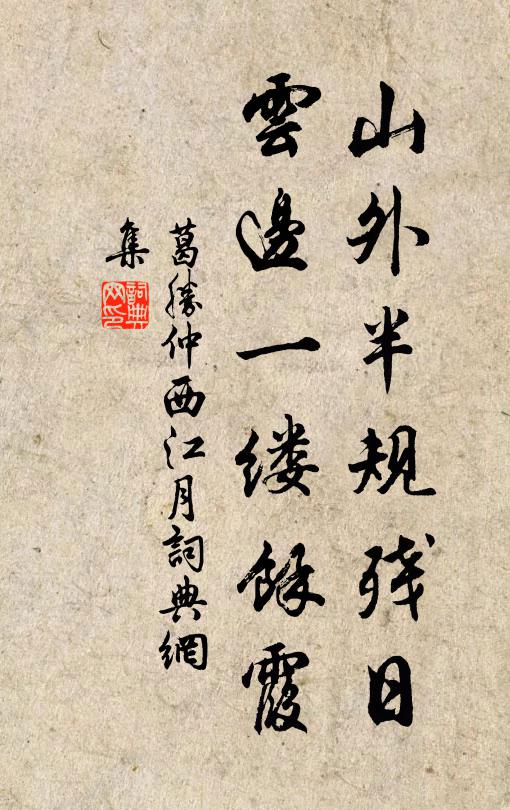 山外半規残日
雲邊一缕餘霞
葛勝仲西江月詞典網
集
詞典网印